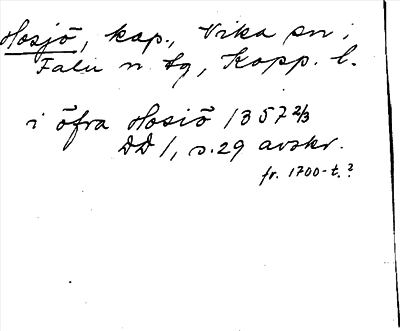 Hosjö, kap., Vika sn i
Falu n. tg, Kopp. l.
i öfra Hosiö 1357 2/3
DD 1, s. 29 avskr.
fr. 1700-t.?